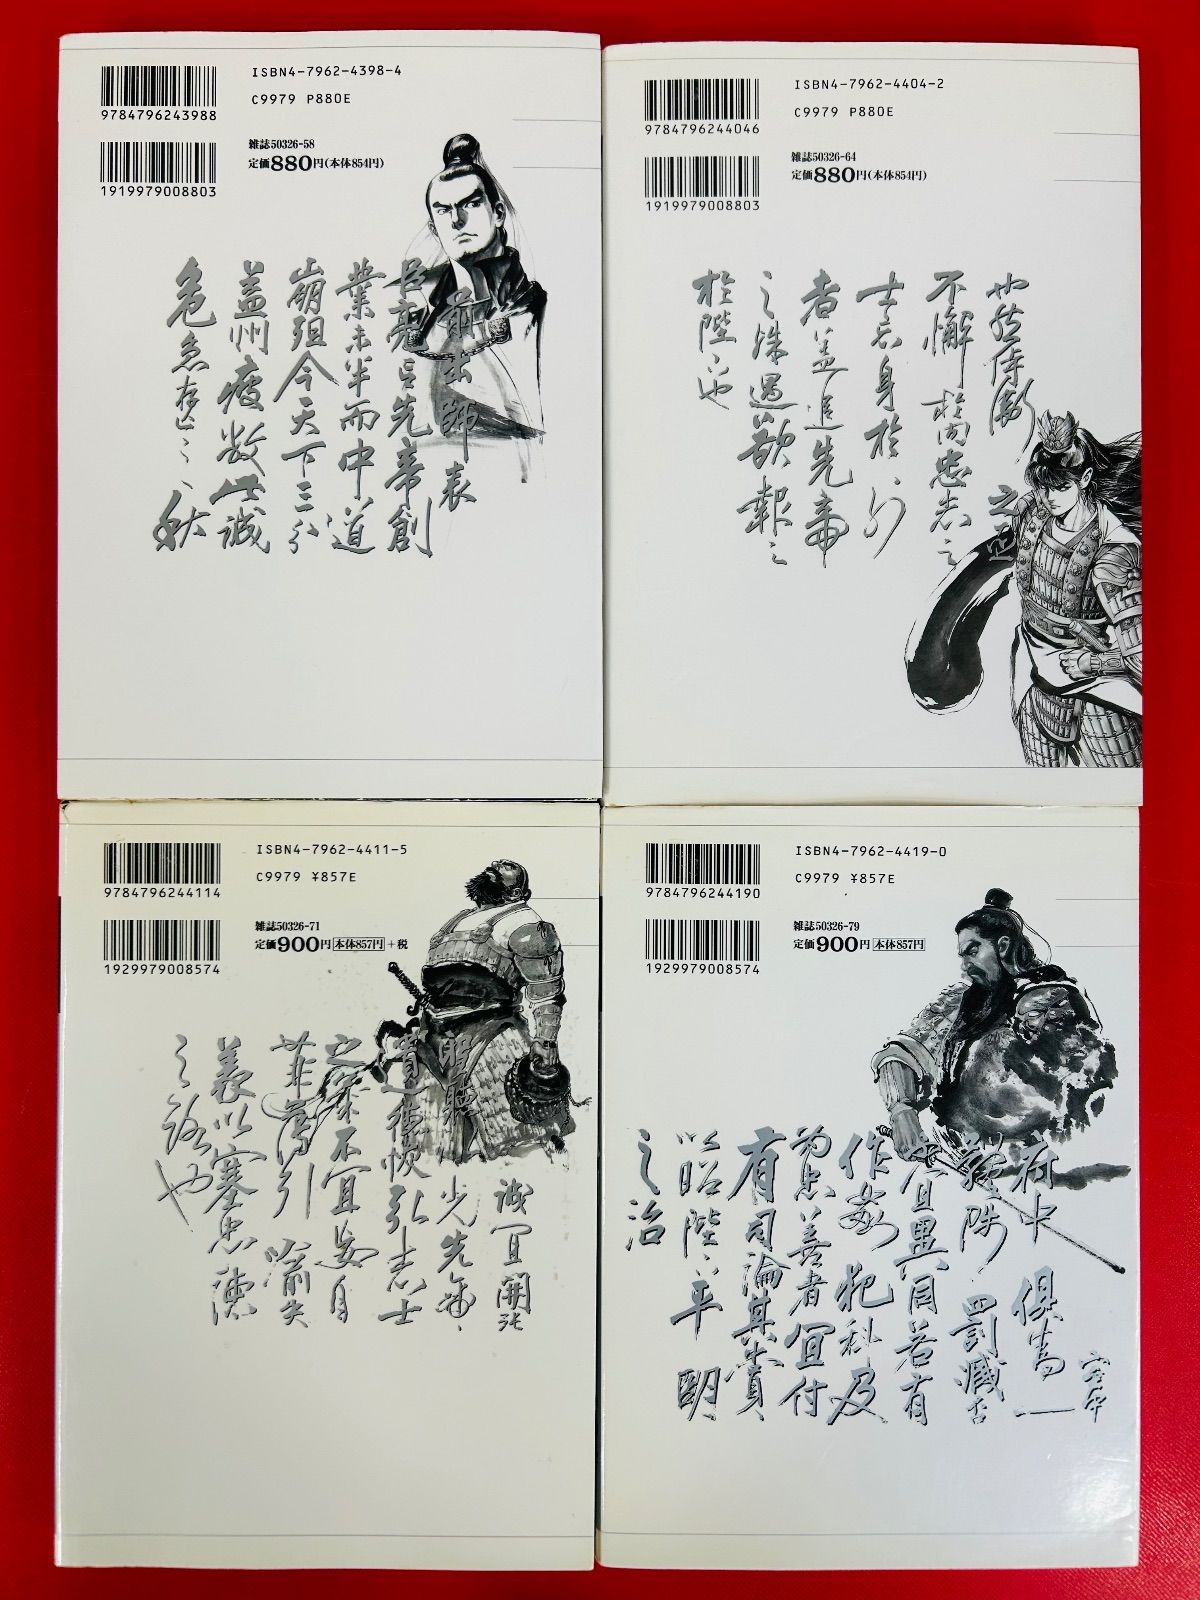 ISBN4-7962-4398-4
C9979 P880E
9784796243988
雑誌50326-58
定価880円(本体854円)
1919979008803
前出師表
臣亮言先帝創
業未半而中道
崩殂今天下三分
益州疲敝此誠
危急存亡之秋
ISBN4-7962-4404-2
C9979 P880E
9784796244046
雑誌50326-64
定価880円(本体854円)
1919979008803
也然侍衛之臣
不懈於内忠志之
士忘身於外
者蓋追先帝
之殊遇欲報之
於陛下也
ISBN4-7962-4411-5
C9979 ¥857E
9784796244114
雑誌50326-71
定価900円 本体857円+税
1929979008574
誠宜開張
聖聽以光先帝
遺德恢弘志士
之氣不宜妄自
菲薄引喻失
義以塞忠諫
之路也
ISBN4-7962-4419-0
C9979 ¥857E
9784796244190
雑誌50326-79
定価900円 本体857円
1929979008574
宮中
府中俱為一
體陟罰臧否
不宜異同若有
作姦犯科及
為忠善者宜付
有司論其賞
昭陛下平明
之治